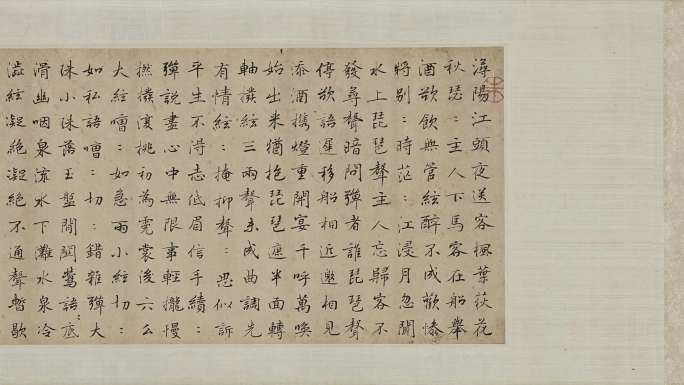 潯陽江頭夜送客楓葉荻花
秋瑟:主人下馬客在船舉
酒欲飲無管絃醉不成歡慘
將別:時茫:江浸月忽聞
水上琵琶聲主人忘歸客不
發尋聲暗問彈者誰琵琶聲
停欲語遲移船相近邀相見
添酒携燈重開宴千呼萬喚
始出来猶抱琵琶遮半面轉
軸撥絃三兩聲未成曲調先
有情絃:掩抑聲:思似訴
平生不得志低眉信手續:
彈說盡心中無限事輕攏慢
撚撥復挑初為霓裳後六么
大絃嘈:如急雨小絃切:
如私語嘈:切:錯雜彈大
珠小珠落玉盤間關鶯語底
滑幽咽泉流水下灘水泉冷
澁絃凝絶凝絶不通聲暫歇